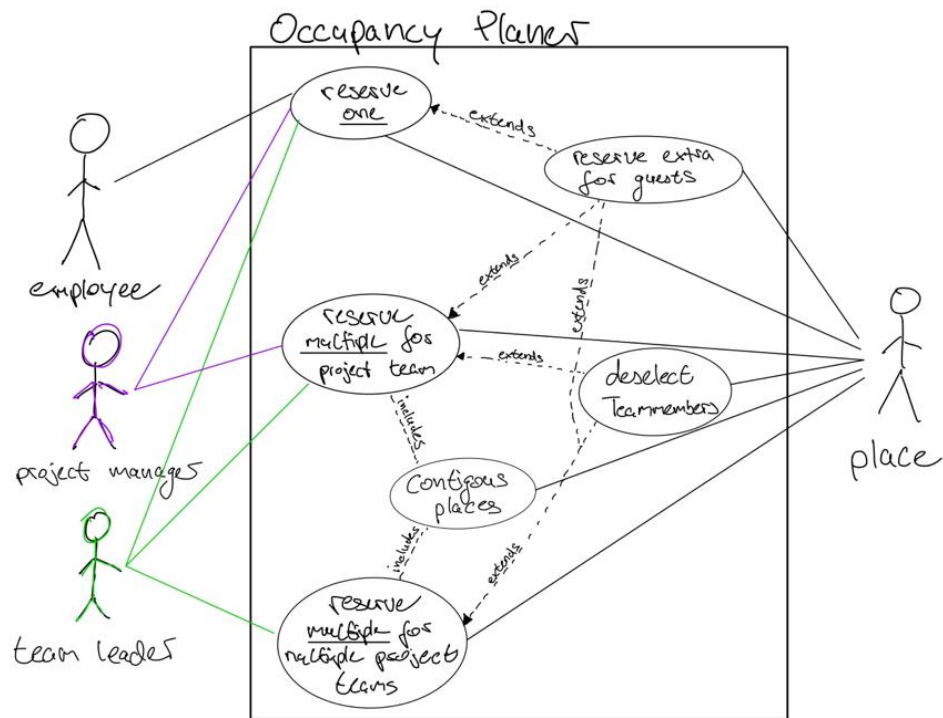 Occupancy Planer
reserve
one
extends
reserve extra
for guests
employee
extends
extends
reserve
multiple for
project team
extends
deselect
Teammembers
place
project manager
includes
contigous
places
includes
extends
team leader
reserve
multiple for
multiple project
teams